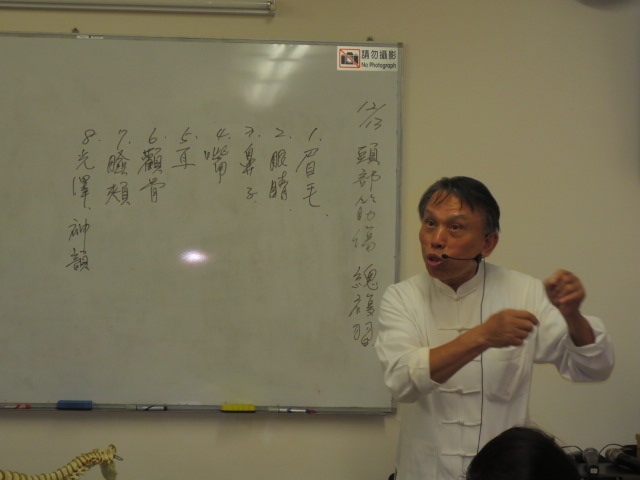 請勿攝影
No Photograph
12/13 頭部筋傷 總複習
1. 眉毛.
2. 眼睛.
3. 鼻子.
4. 嘴
5. 耳
6. 顴骨
7. 臉頰
8. 光澤. 神韻